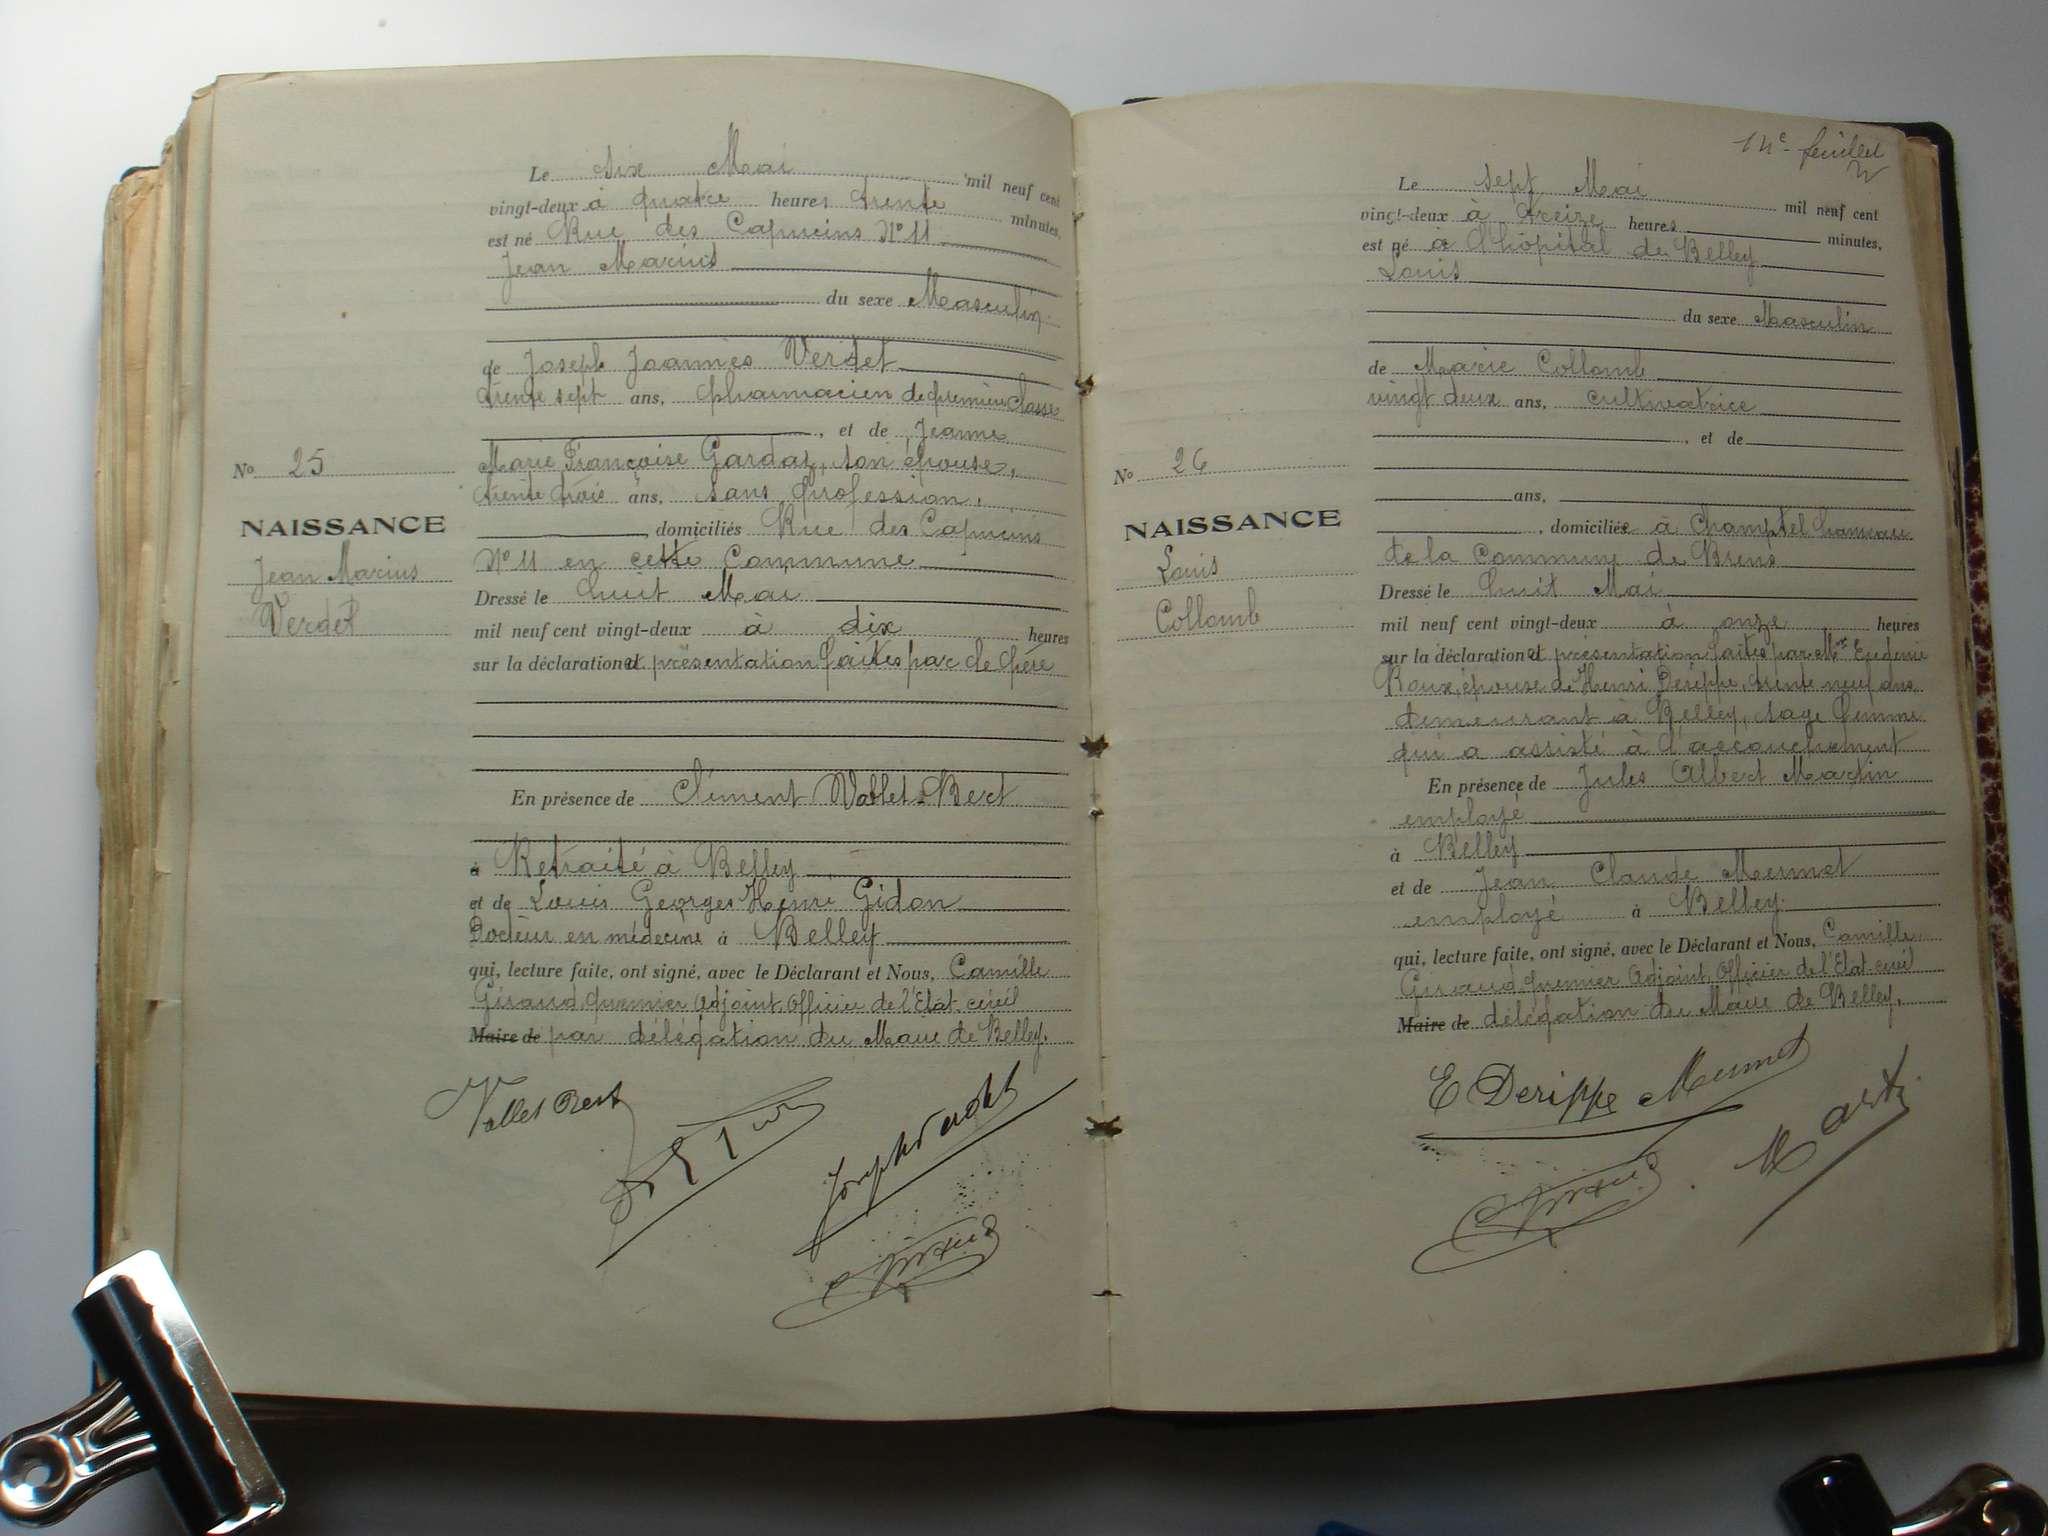 Le six Mai mil neuf cent
vingt-deux à quatre heures trente minutes,
est né Rue des Capucins N° 11
Jean Marius
du sexe Masculin
de Joseph Joannès Verdet
trente sept ans, pharmacien de première classe
, et de Jeanne
Marie Françoise Gardaz, son épouse,
trente trois ans, sans profession,
, domiciliés Rue des Capucins
N° 11 en cette Commune
Dressé le huit Mai
mil neuf cent vingt-deux à dix heures
sur la déclaration et présentation faites par le père
En présence de Clément Vallet-Bert
à Retraité à Belley
et de Louis Georges Henri Gidon
Docteur en médecine à Belley
qui, lecture faite, ont signé, avec le Déclarant et Nous, Camille
Giraud premier Adjoint, Officier de l'Etat-civil
Maire de par délégation du Maire de Belley.
No 25
NAISSANCE
Jean Marius
Verdet
Vallet Bert
Joseph Verdet
14e feuillet
Le sept Mai mil neuf cent
vingt-deux à treize heures minutes,
est né à l'hôpital de Belley
Louis
du sexe Masculin
de Marie Collomb
vingt deux ans, cultivatrice
, et de
ans,
, domiciliée à Champtel hameau
de la Commune de Brens
Dressé le huit Mai
mil neuf cent vingt-deux à onze heures
sur la déclaration et présentation faites par Mme Eugénie
Roux, épouse de Henri Dérippe, trente neuf ans
demeurant à Belley, sage femme
qui a assisté à l'accouchement
En présence de Jules Albert Martin
employé
à Belley
et de Jean Claude Mermet
employé à Belley
qui, lecture faite, ont signé, avec le Déclarant et Nous, Camille
Giraud premier Adjoint, Officier de l'Etat-civil
Maire de délégation du Maire de Belley.
No 26
NAISSANCE
Louis
Collomb
E Derippe Mermet
Martin